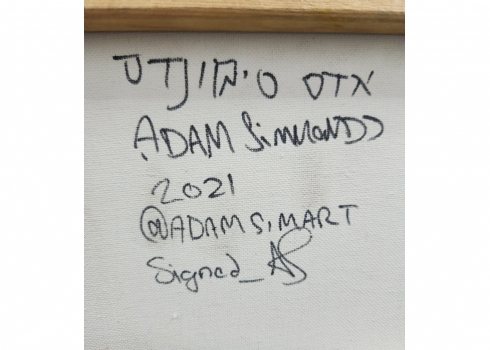 אדם סימונדס
ADAM SimMONDS
2021
@ADAMSIMART
Signed_AS